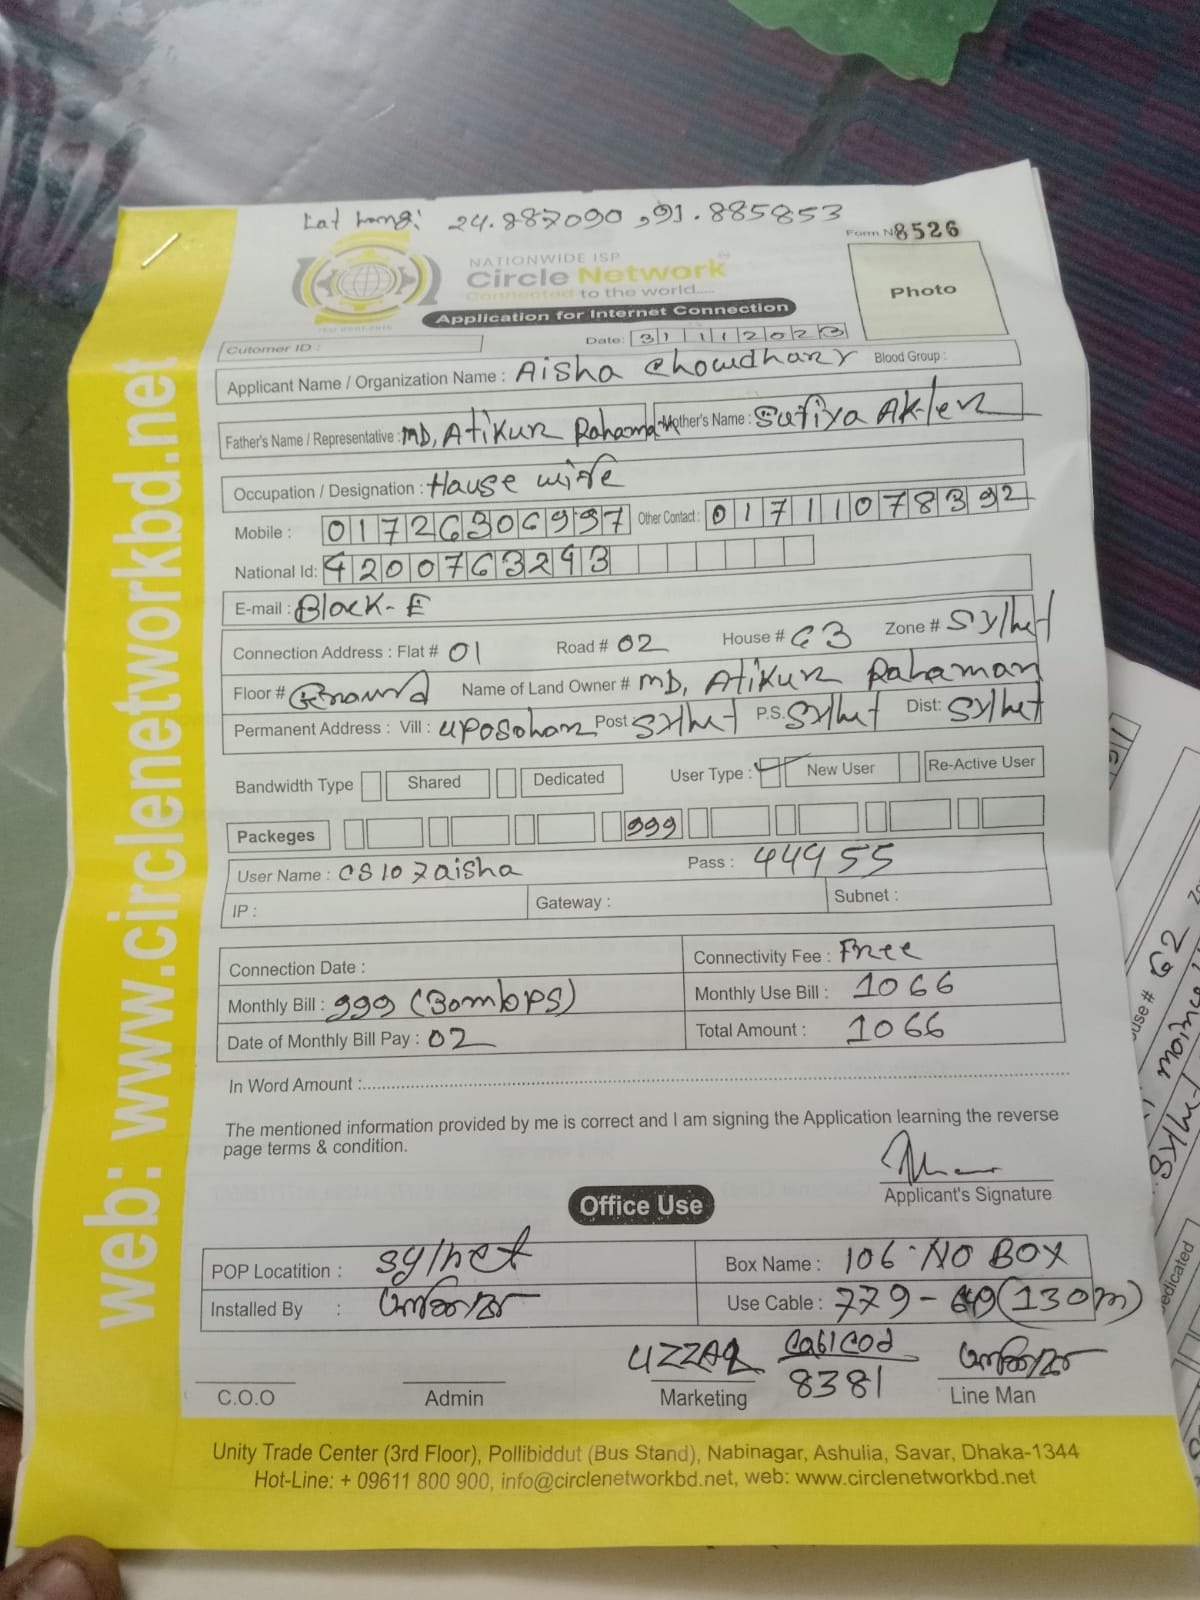 Lat Long: 24.887090 ,91.885853
Form N 8526
NATIONWIDE ISP
Circle Network
Connected to the world.....
Application for Internet Connection
Photo
Date: 31 11 2023
Cutomer ID :
Applicant Name / Organization Name : Aisha Chowdhary Blood Group :
Father's Name / Representative : MD, Atikur Rahaman Mother's Name : Sufiya Akter
Occupation / Designation : Hause wife
Mobile : 01726306997 Other Contact : 01711078392
National Id: 4200763293
E-mail : Block-E
Connection Address : Flat # 01 Road # 02 House # 63 Zone # Sylhet
Floor # Ground Name of Land Owner # MD, Atikur Rahaman
Permanent Address : Vill : Uposohor Post Sylhet P.S. Sylhet Dist: Sylhet
Bandwidth Type Shared Dedicated User Type : New User Re-Active User
Packeges 999
User Name : CS107aisha Pass : 44955
IP : Gateway : Subnet :
Connection Date : Connectivity Fee : Free
Monthly Bill : 999 (30mbps) Monthly Use Bill : 1066
Date of Monthly Bill Pay : 02 Total Amount : 1066
In Word Amount :
The mentioned information provided by me is correct and I am signing the Application learning the reverse
page terms & condition.
Applicant's Signature
Office Use
POP Locatition : Sylhet Box Name : 106-NO BOX
Installed By : Use Cable : 779 - (130m)
Cabl cod
8381
C.O.O Admin Marketing Line Man
Unity Trade Center (3rd Floor), Pollibiddut (Bus Stand), Nabinagar, Ashulia, Savar, Dhaka-1344
Hot-Line: + 09611 800 900, info@circlenetworkbd.net, web: www.circlenetworkbd.net
web: www.circlenetworkbd.net
use # 62
Sylhet
edicated